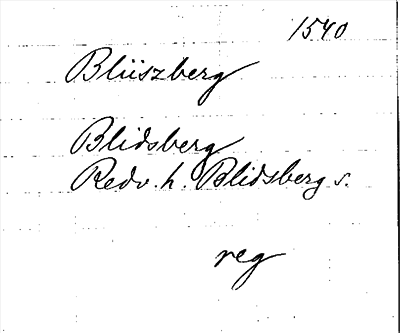 1540
Bliiszberg
Blidsberg
Redv. h. Blidsberg s.
reg